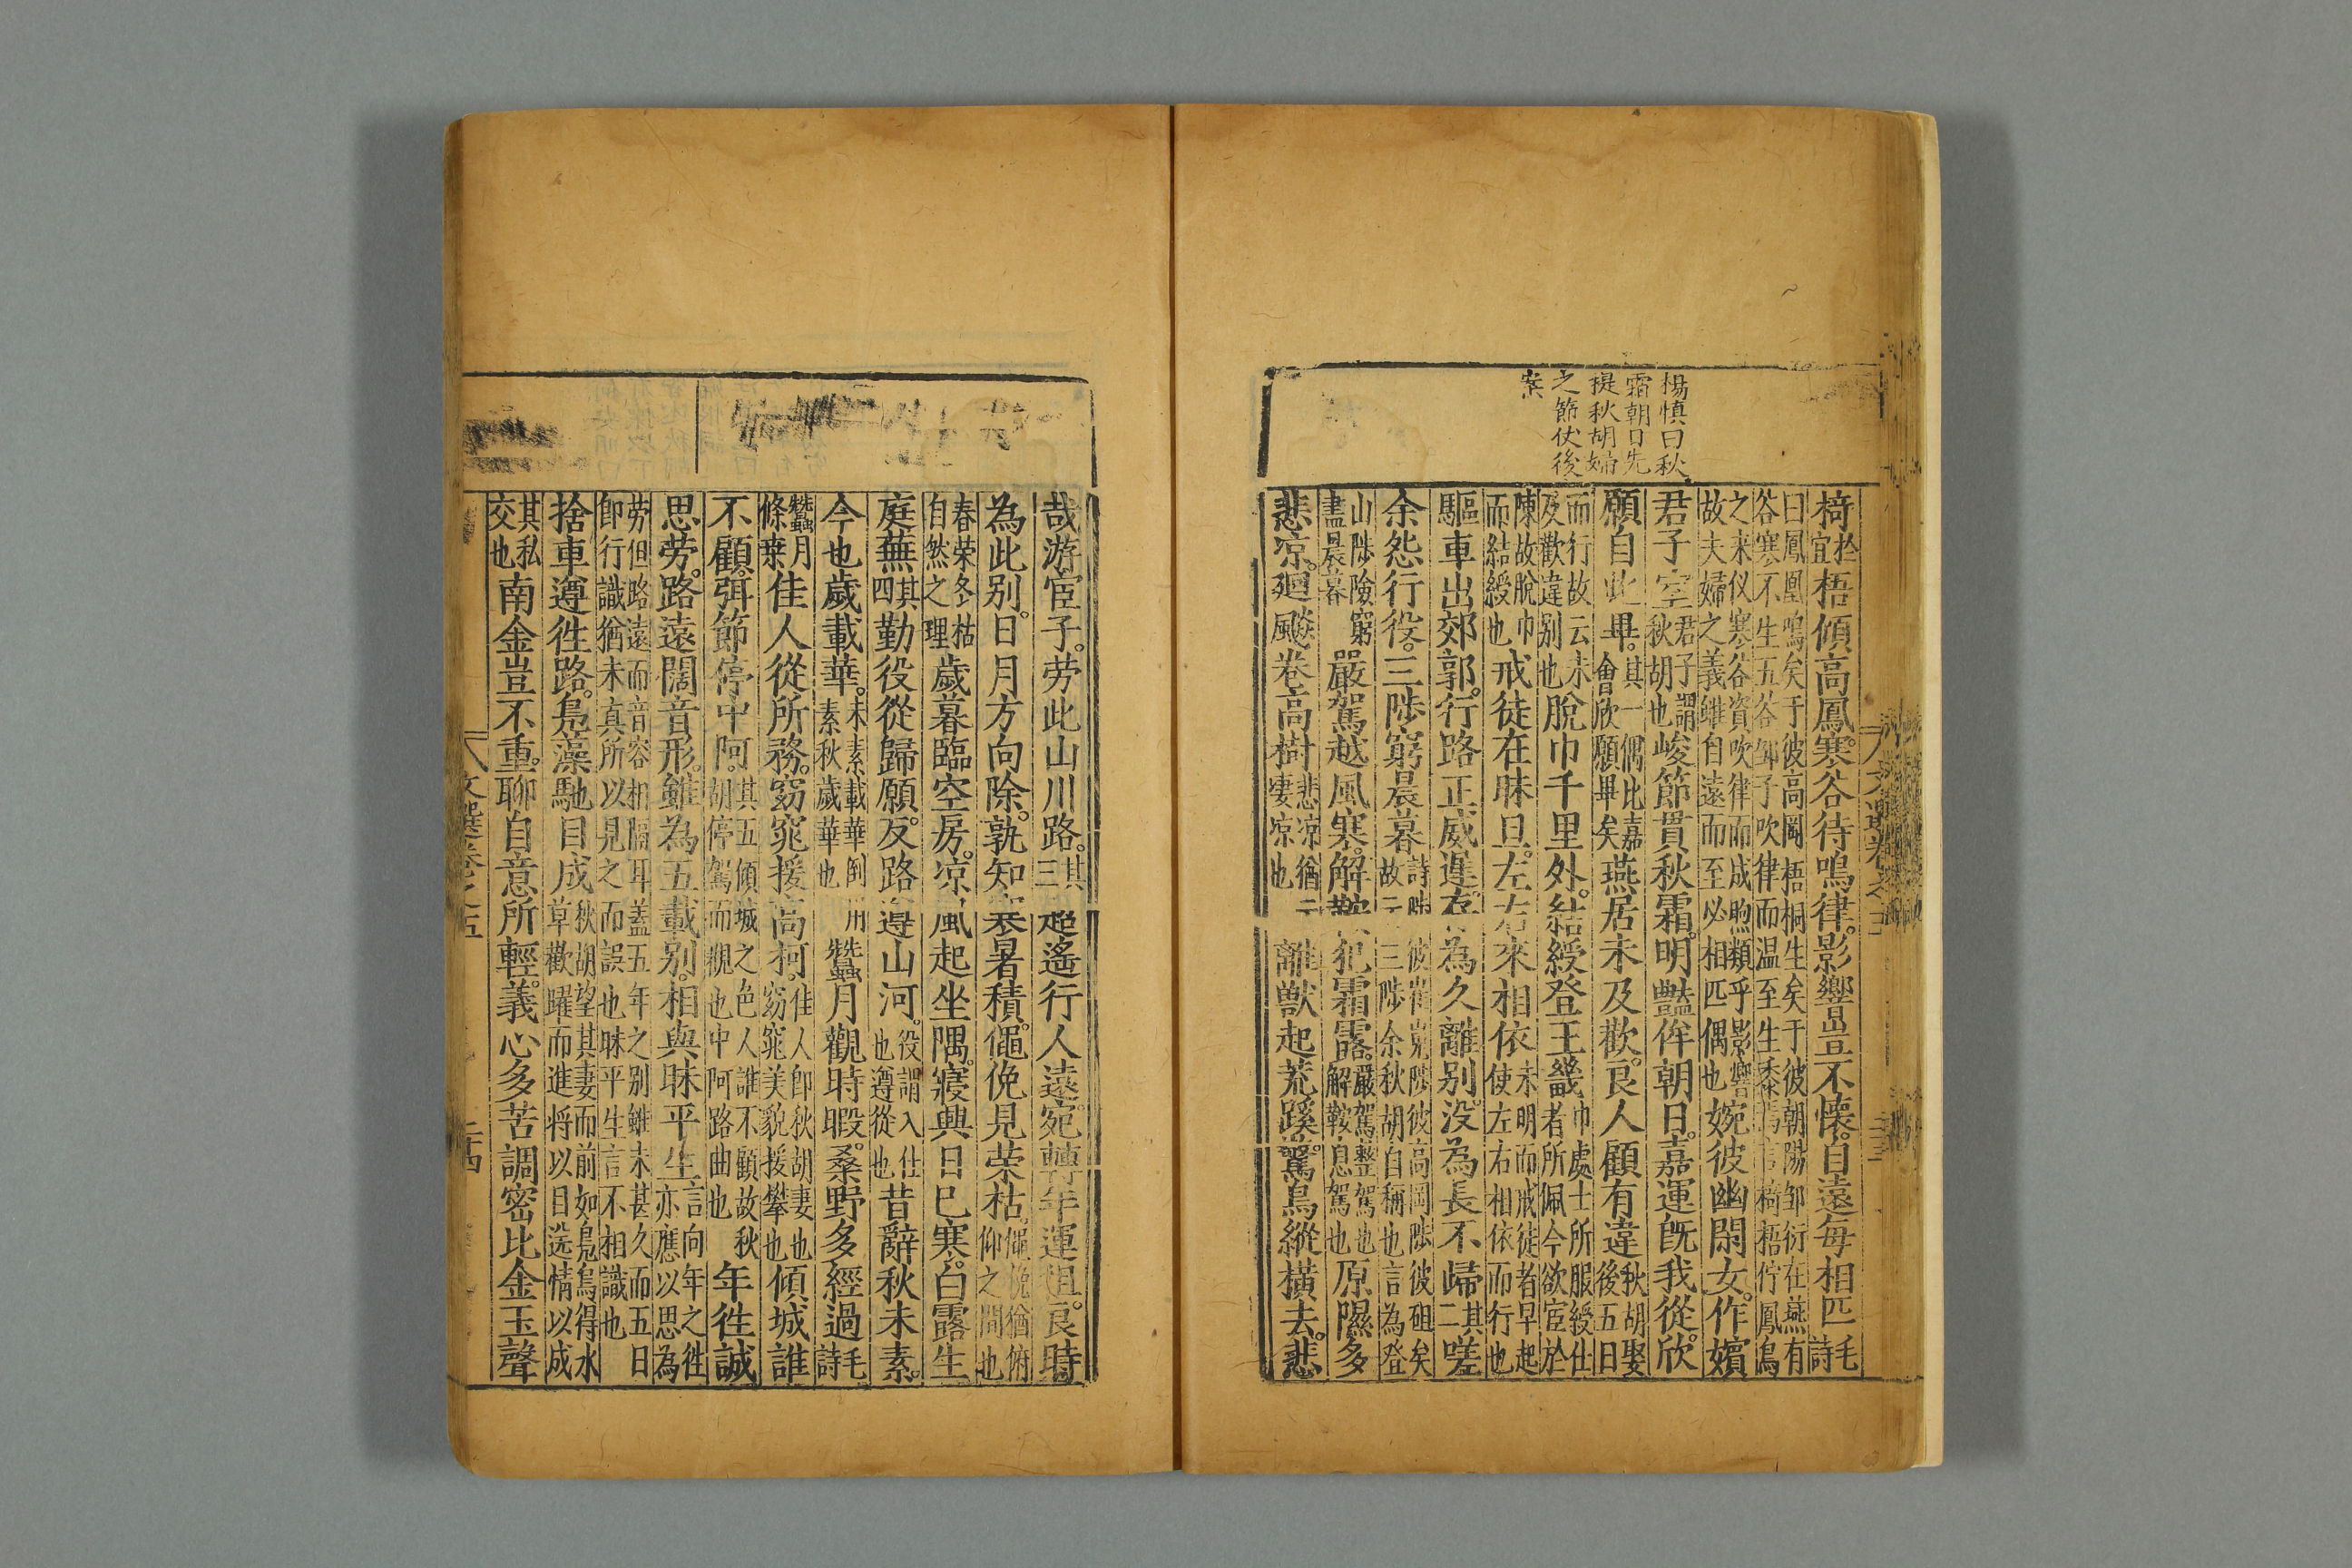 楊慎曰秋
霜朝日先
提秋胡婦
之節伏後
案
椅於宜梧傾高鳳寒谷待鳴律影響豈不懷自遠每相匹毛詩
曰鳳凰鳴矣于彼高岡梧桐生矣于彼朝陽鄒衍在燕有
谷寒不生五谷鄒子吹律而温至生黍椅梧佇鳳鳥
之来仪寒谷資吹律而成煦類乎影響
故夫婦之義雖自遠而至必相匹偶也婉彼幽閑女作嬪
君子室君子謂秋胡也峻節貫秋霜明豔侔朝日嘉運既我從欣
願自此畢其一偶比嘉會欣願畢矣燕居未及歡良人顧有違秋胡娶後五日
而行故云未及歡違别也脫巾千里外結綬登王畿巾處士所服綬仕者所佩今欲宦於
陳故脫巾而結綬也戒徒在昧旦左右來相依未明而戒徒者早起使左右相依而行也
驅車出郊郭行路正威遲存為久離别没為長不歸其二嗟
余怨行役三陟窮晨暮詩陟彼崔嵬陟彼高岡陟彼砠矣故云三陟余秋胡自稱也言為登
山陟險窮盡晨暮嚴駕越風寒解鞍犯霜露嚴駕整駕也解鞍息駕也原隰多
悲凉廻飈卷高樹悲凉猶凄凉也離獸起荒蹊驚鳥縱横去悲
哉游宦子劳此山川路其三超遙行人遠宛轉年運徂良時
為此别日月方向除孰知寒暑積僶俛見荣枯僶俛猶俯仰之間也
春荣冬枯自然之理歲暮臨空房凉風起坐隅寢興日已寒白露生
庭蕪其四勤役從歸願反路遵山河役謂入仕也遵從也昔辭秋未素
今也歲載華未素載華倒素秋歲華也用蠶月觀時暇桑野多經過毛詩
蠶月條桒佳人從所務窈窕援高柯佳人即秋胡妻也窈窕美貌援攀也傾城誰
不顧弭節停中阿其五傾城之色人誰不顧故秋胡停駕而觀也中阿路曲也年徃誠
思劳路遠闊音形雖為五載别相與昧平生言向年之徃亦應以思為
劳但路遠而音容相隔耳蓋五年之别雖未甚久而五日
即行識猶未真所以見之而誤也昧平生言不相識也
捨車遵徃路鳧藻馳目成秋胡望其妻而前如鳧鳥得水草歡躍而進将以目送情以成
其私交也南金豈不重聊自意所輕義心多苦調密比金玉聲